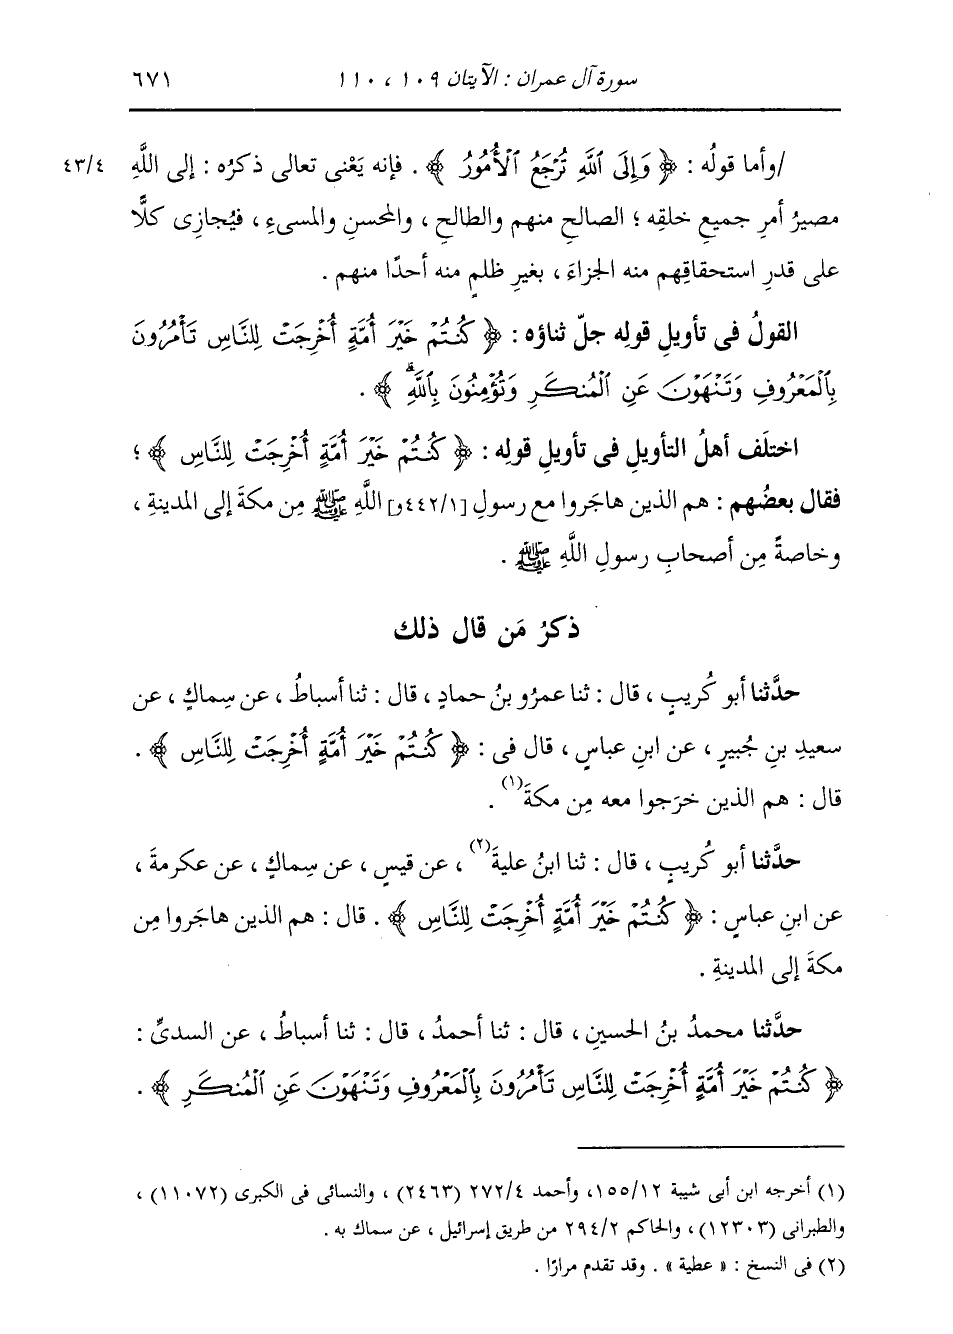 سورة آل عمران : الآيتان ١٠٩ ، ١١٠ ٦٧١
/وأما قولُه : ﴿ وَإِلَى ٱللَّهِ تُرْجَعُ ٱلْأُمُورُ ﴾ . فإنه يَعْنى تعالى ذكرُه : إلى اللَّهِ ٤٣/٤
مصيرُ أمرِ جميعِ خلقِه ؛ الصالحِ منهم والطالحِ ، والمحسنِ والمسىءِ ، فيُجازِى كلًّا
على قدرِ استحقاقِهم منه الجزاءَ ، بغيرِ ظلمٍ منه أحدًا منهم .
القولُ فى تأويلِ قولِه جلّ ثناؤه : ﴿ كُنتُمْ خَيْرَ أُمَّةٍ أُخْرِجَتْ لِلنَّاسِ تَأْمُرُونَ
بِٱلْمَعْرُوفِ وَتَنْهَوْنَ عَنِ ٱلْمُنكَرِ وَتُؤْمِنُونَ بِٱللَّهِ ۗ ﴾ .
اختلَف أهلُ التأويلِ فى تأويلِ قولِه : ﴿ كُنتُمْ خَيْرَ أُمَّةٍ أُخْرِجَتْ لِلنَّاسِ ﴾ ؛
فقال بعضُهم : هم الذين هاجَروا مع رسولِ [٤٤٢/١و] اللَّهِ ﷺ مِن مكةَ إلى المدينةِ ،
وخاصةً مِن أصحابِ رسولِ اللَّهِ ﷺ .
ذكرُ مَن قال ذلك
حدَّثنا أبو كُريبٍ ، قال : ثنا عمرُو بنُ حمادٍ ، قال : ثنا أسباطُ ، عن سِماكٍ ، عن
سعيدِ بنِ جُبيرٍ ، عن ابنِ عباسٍ ، قال فى : ﴿ كُنتُمْ خَيْرَ أُمَّةٍ أُخْرِجَتْ لِلنَّاسِ ﴾ .
قال : هم الذين خرَجوا معه مِن مكةَ(١) .
حدَّثنا أبو كُريبٍ ، قال : ثنا ابنُ عليةَ(٢) ، عن قيسٍ ، عن سِماكٍ ، عن عكرمةَ ،
عن ابنِ عباسٍ : ﴿ كُنتُمْ خَيْرَ أُمَّةٍ أُخْرِجَتْ لِلنَّاسِ ﴾ . قال : هم الذين هاجَروا مِن
مكةَ إلى المدينةِ .
حدَّثنا محمدُ بنُ الحسينِ ، قال : ثنا أحمدُ ، قال : ثنا أسباطُ ، عن السدىِّ :
﴿ كُنتُمْ خَيْرَ أُمَّةٍ أُخْرِجَتْ لِلنَّاسِ تَأْمُرُونَ بِٱلْمَعْرُوفِ وَتَنْهَوْنَ عَنِ ٱلْمُنكَرِ ﴾ .
(١) أخرجه ابن أبى شيبة ١٥٥/١٢، وأحمد ٢٧٢/٤ (٢٤٦٣) ، والنسائى فى الكبرى (١١٠٧٢) ،
والطبرانى (١٢٣٠٣) ، والحاكم ٢٩٤/٢ من طريق إسرائيل ، عن سماك به .
(٢) فى النسخ : « عطية » . وقد تقدم مرارًا .